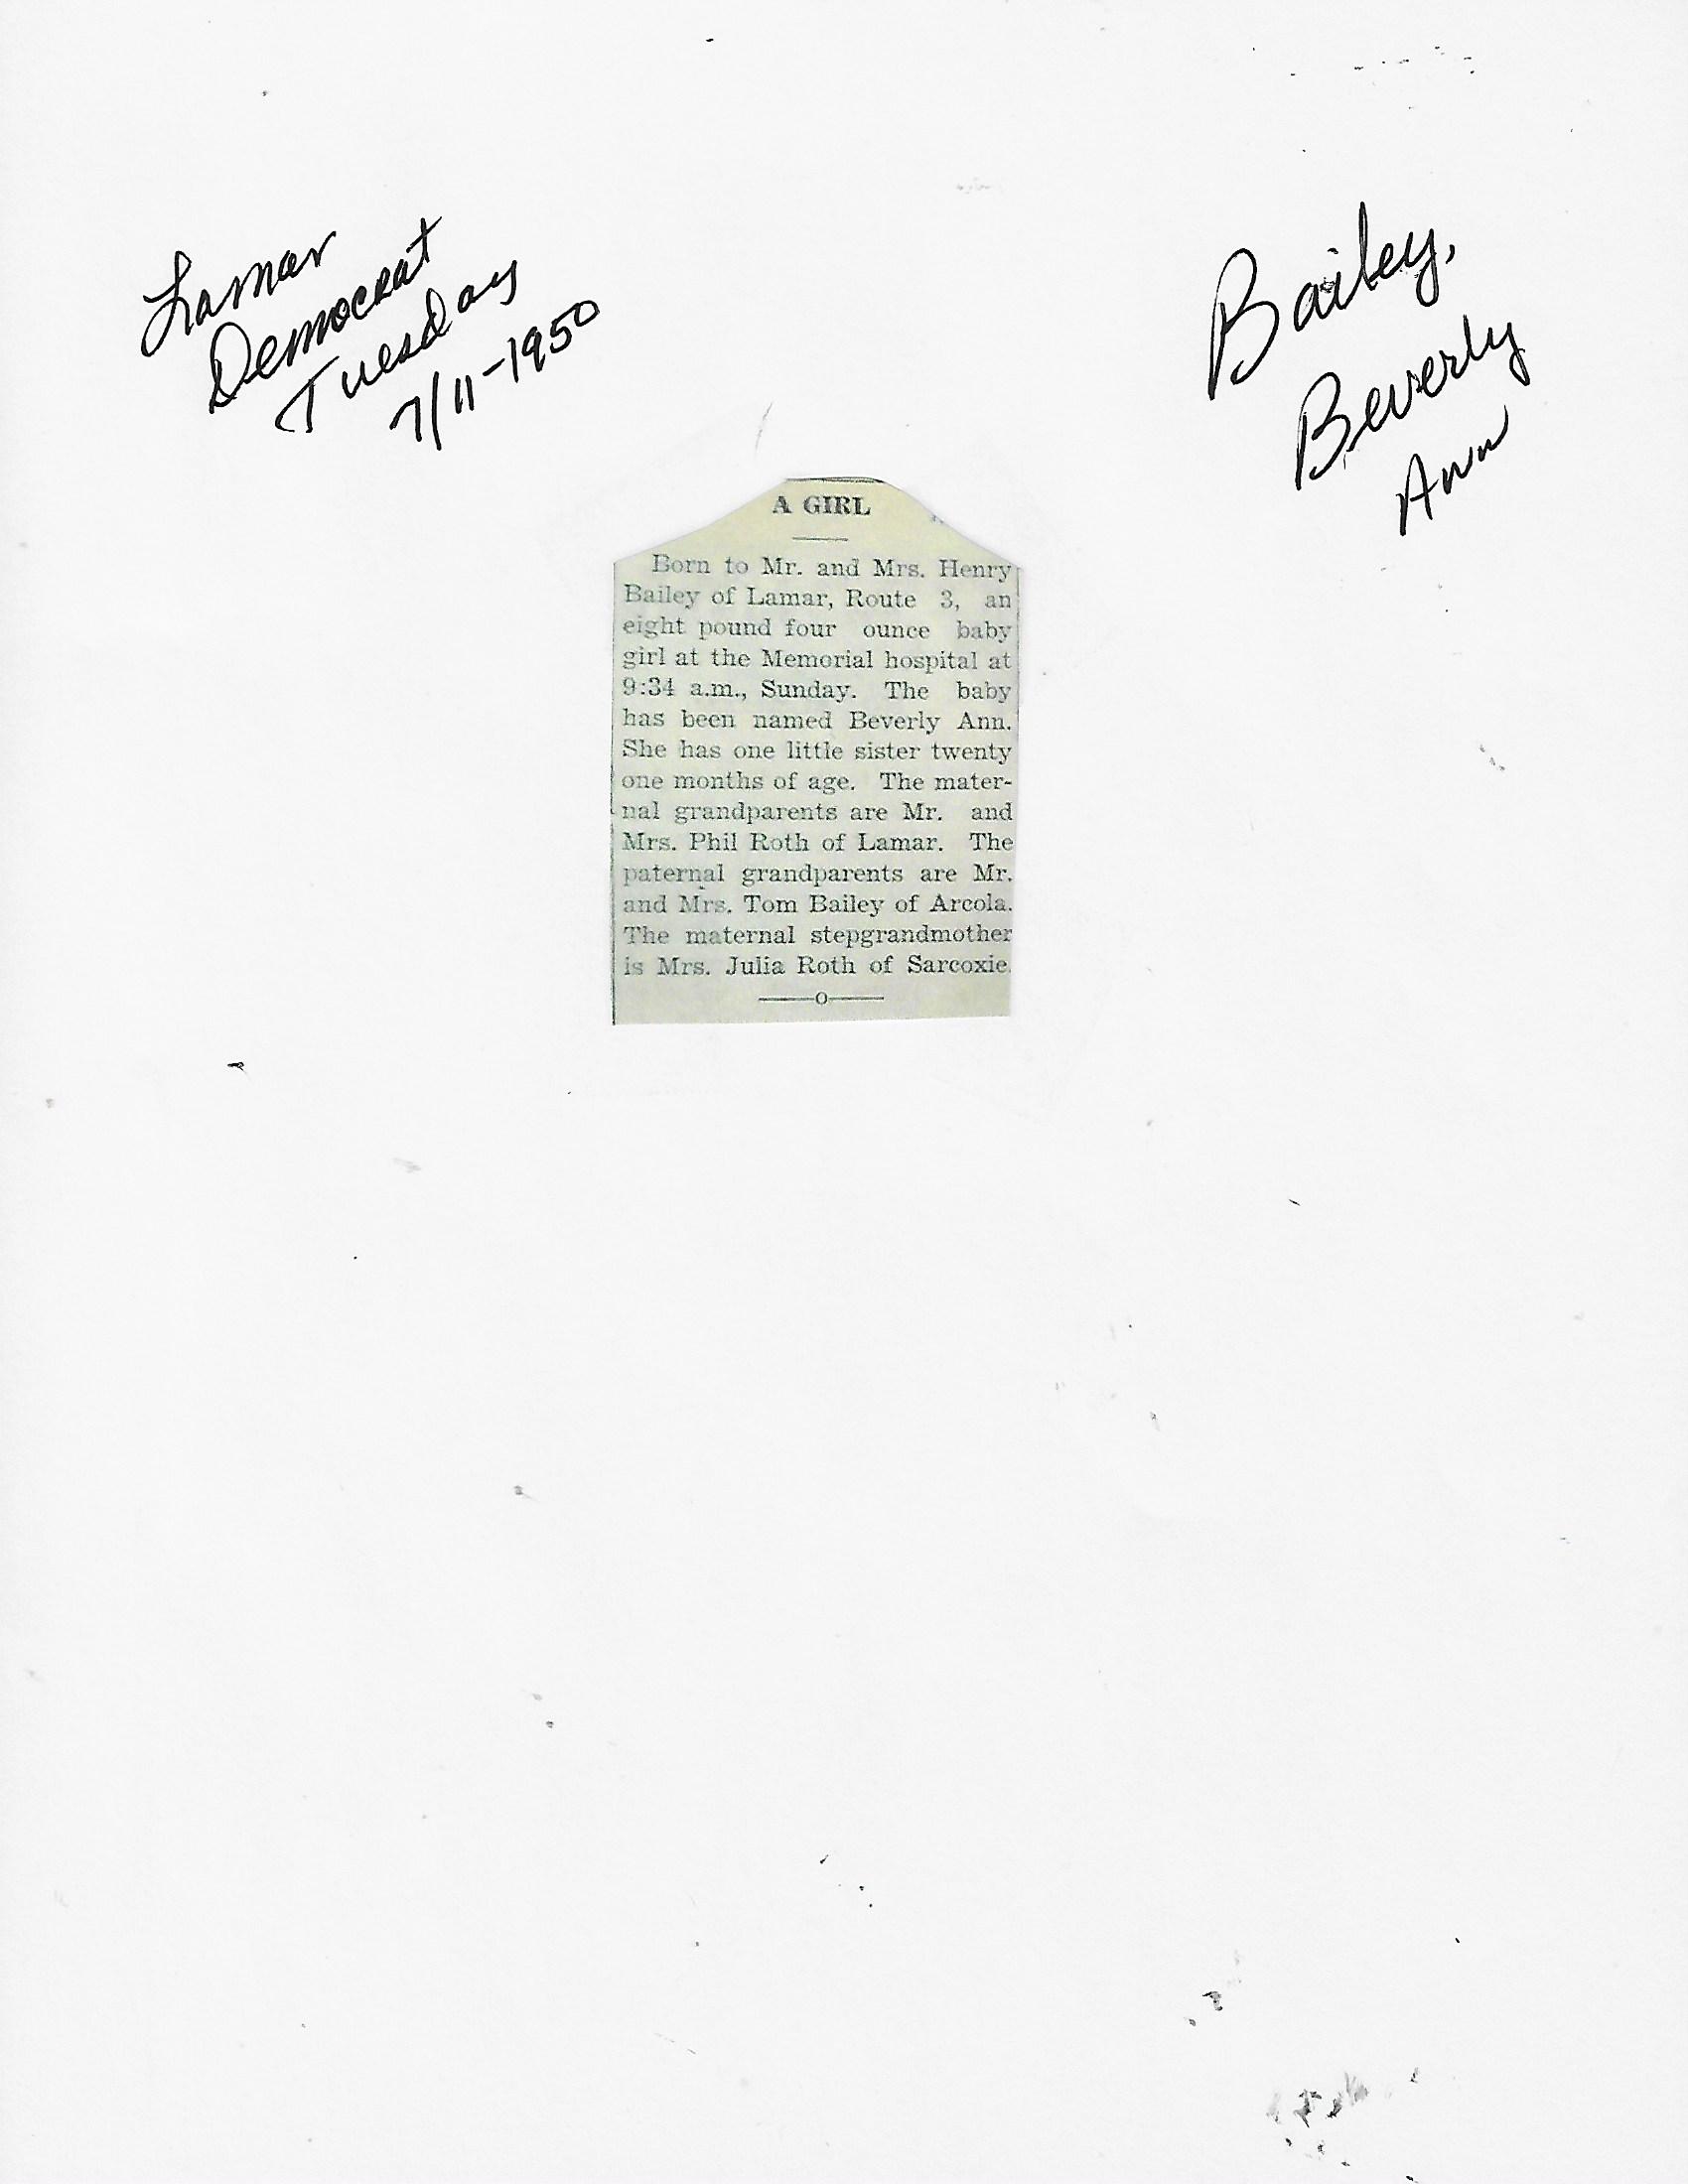 Lamar
Democrat
Tuesday
7/11-1950
Bailey,
Beverly
Ann
A GIRL
Born to Mr. and Mrs. Henry
Bailey of Lamar, Route 3, an
eight pound four ounce baby
girl at the Memorial hospital at
9:34 a.m., Sunday. The baby
has been named Beverly Ann.
She has one little sister twenty
one months of age. The mater-
nal grandparents are Mr. and
Mrs. Phil Roth of Lamar. The
paternal grandparents are Mr.
and Mrs. Tom Bailey of Arcola.
The maternal stepgrandmother
is Mrs. Julia Roth of Sarcoxie.